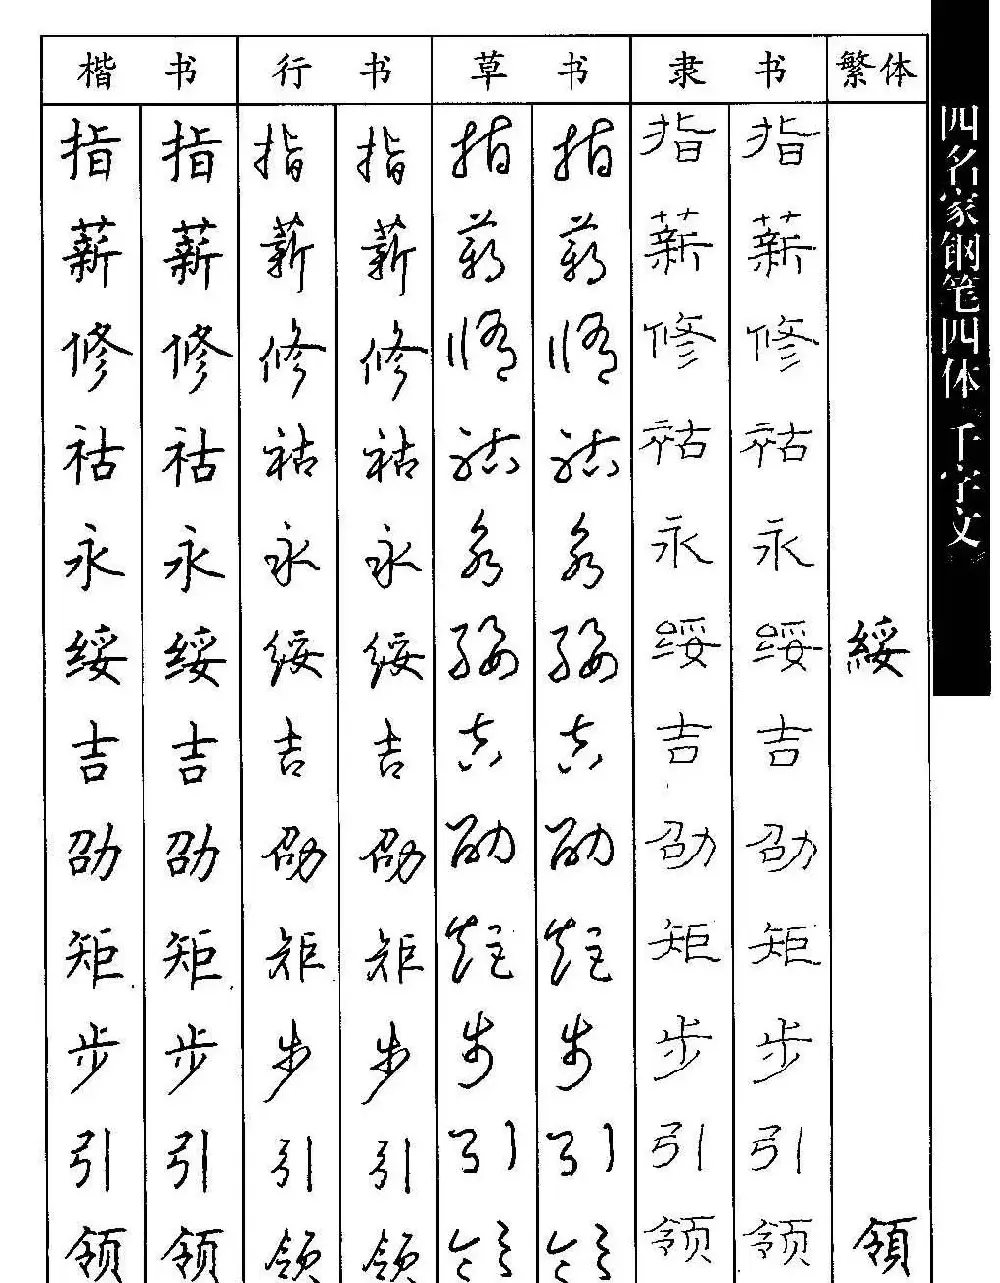 楷书 行书 草书 隶书 繁体
指 指 指 指 指 指 指 指
薪 薪 薪 薪 薪 薪 薪 薪
修 修 修 修 修 修 修 修
祜 祜 祜 祜 祜 祜 祜 祜
永 永 永 永 永 永 永 永
绥 绥 绥 绥 绥 绥 绥 绥 綏
吉 吉 吉 吉 吉 吉 吉 吉
劭 劭 劭 劭 劭 劭 劭 劭
矩 矩 矩 矩 矩 矩 矩 矩
步 步 步 步 步 步 步 步
引 引 引 引 引 引 引 引
领 领 领 领 领 领 领 领 領
四名家钢笔四体千字文